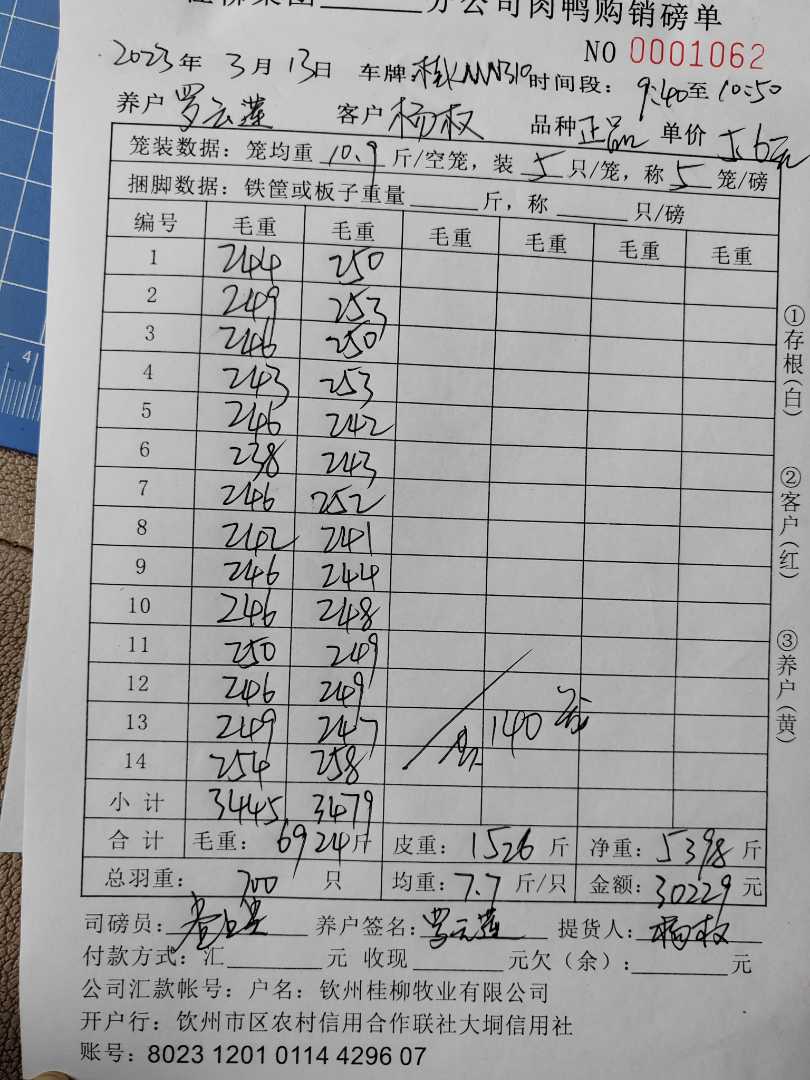 桂柳集团______分公司肉鸭购销磅单
NO 0001062
2023年 3月 13日 车牌 时间段：9:40至10:50
养户 罗云莲 客户 杨权 品种 正品 单价 5.6元
笼装数据：笼均重 10.9 斤/空笼，装 5 只/笼，称 5 笼/磅
捆脚数据：铁筐或板子重量______斤，称______只/磅
编号 毛重 毛重 毛重 毛重 毛重 毛重
1 244 250
2 249 253
3 246 250
4 243 253
5 246 242
6 238 243
7 246 252
8 242 241
9 246 244
10 246 248
11 250 249
12 246 249
13 249 247
14 254 258
140
小计 3445 3479
合计 毛重：6924斤 皮重：1526斤 净重：5398斤
总羽重：700 只 均重：7.7斤/只 金额：30229元
司磅员： 养户签名：罗云莲 提货人：杨权
付款方式：汇______元 收现______元欠（余）：______元
公司汇款帐号：户名：钦州桂柳牧业有限公司
开户行：钦州市区农村信用合作联社大垌信用社
账号：8023 1201 0114 4296 07
①存根(白)
②客户(红)
③养户(黄)
4